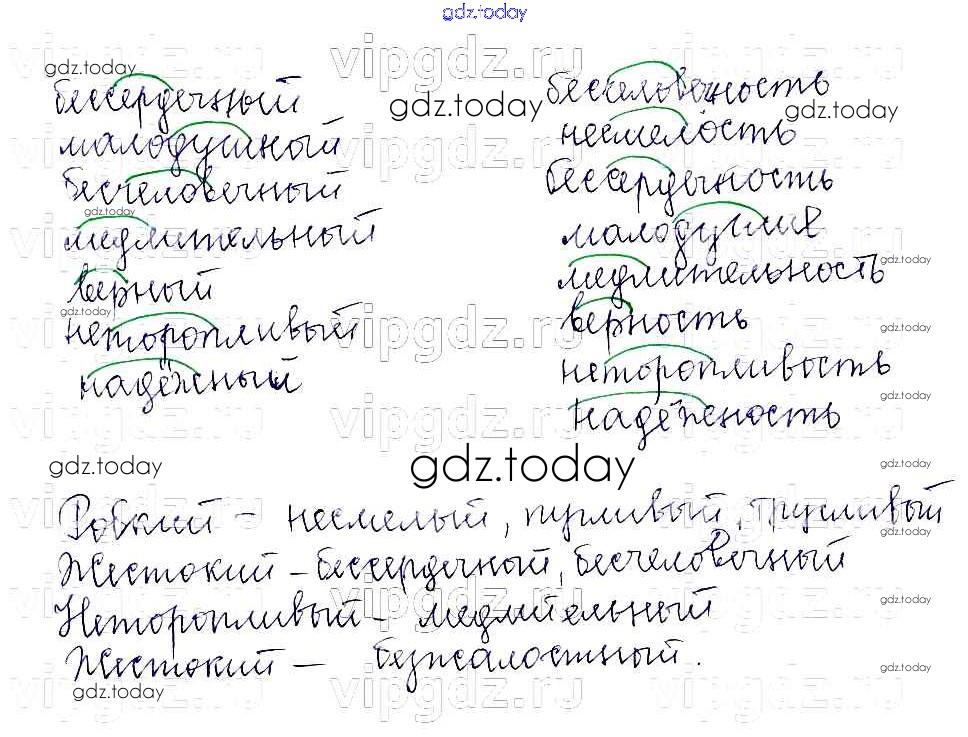 gdz.today
бессердечный
малодушный
бесчеловечный
медлительный
верный
неторопливый
надёжный
бесчеловечность
несмелость
бессердечность
малодушие
медлительность
верность
неторопливость
надёжность
gdz.today
Робкий – несмелый, пугливый, трусливый
Жестокий – бессердечный, бесчеловечный
Неторопливый – медлительный
Жестокий – безжалостный.
gdz.today